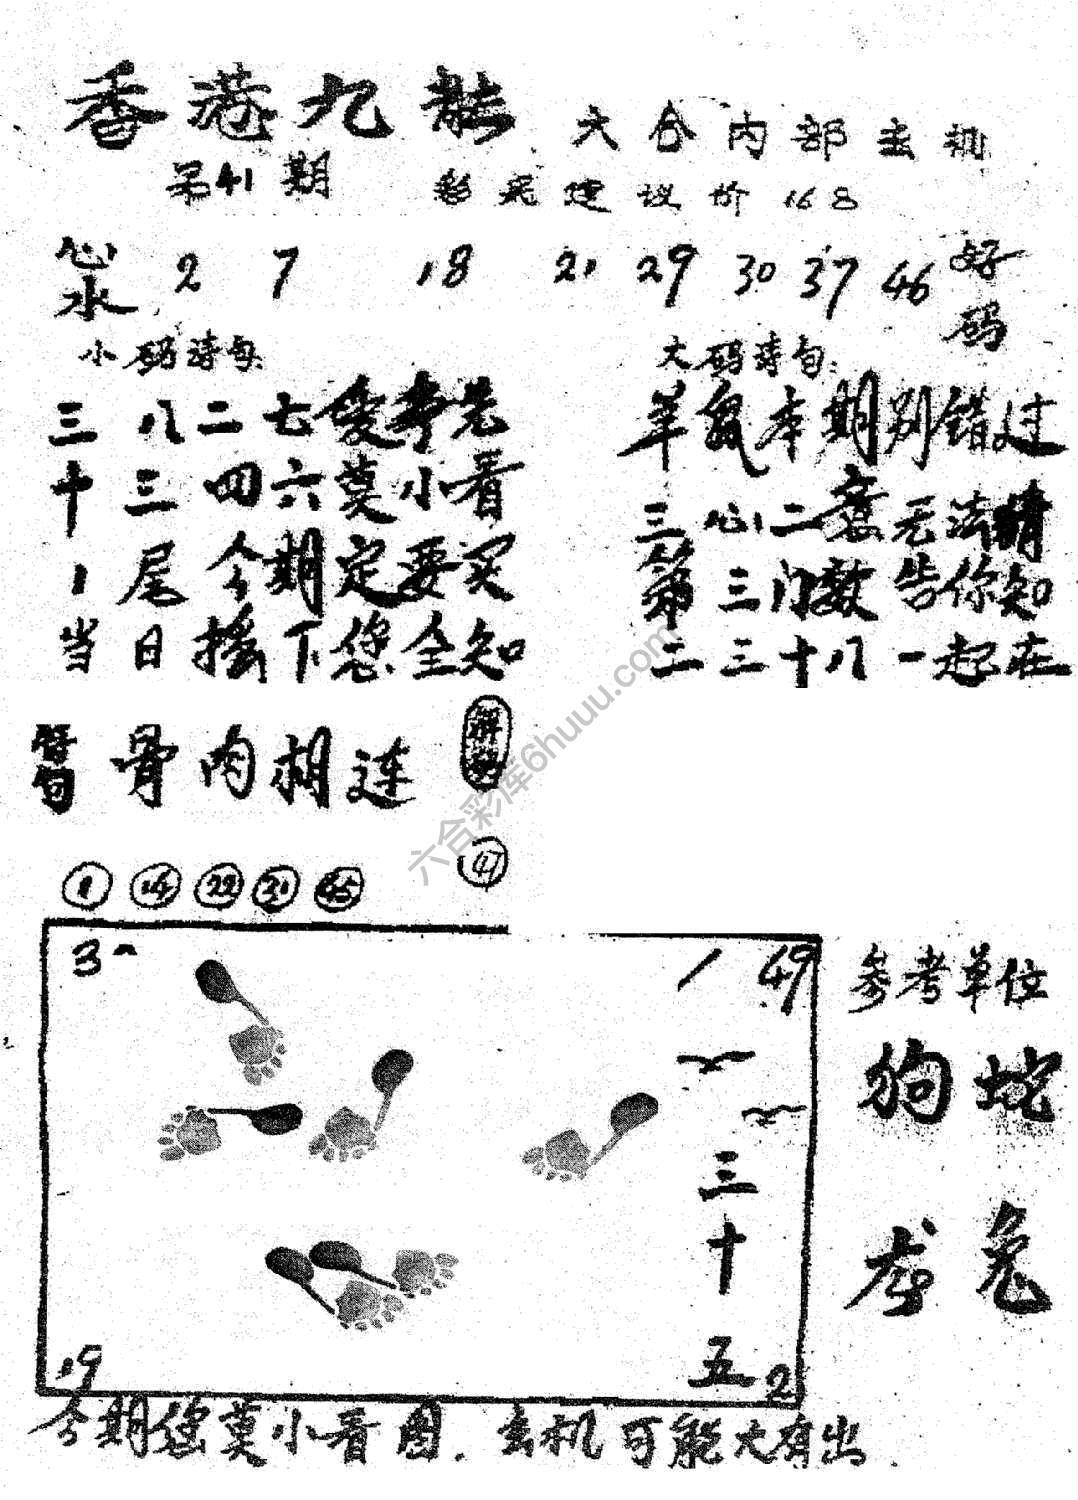 香港九龙
六合内部玄机
第41期
彩民建议价168
心水 2 7 18 21 29 30 37 46 好码
小码诗句:
三八二七爱考先
十三四六莫小看
1尾今期定要买
当日摇下您全知
大码诗句:
羊鼠本期别错过
三心二意无法猜
第三门数告你知
二三十八一起在
骨肉相连
解码
8 14 22 31 45 47
3
1 49
三十五
19
2
参考单位
狗 蛇
龙 兔
今期您莫小看图.玄机可能大有出
六合彩库6huuu.com